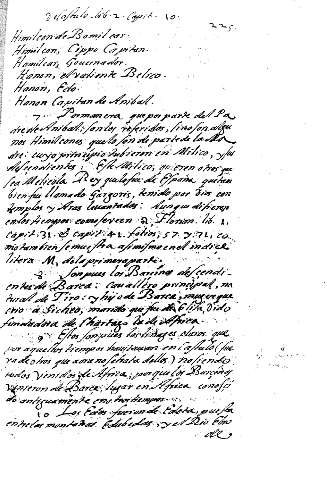 Castulo. lib. 2. Capit. 10.
225.
Himilcon de Bomilcar.
Himilcon, Cippo Capitan.
Hamilcar, Governador.
Hanon, el valiente Belico.
Hanon, Edo.
Hanon Capitan de Anibal.
7. Por manera que por parte del Pa
dre de Anibal, son los referidos, sino son algu
nos Himilcones que lo son de parte de la Ma
dre: cuyo principio tubieron en Milico, y sus
descendientes. Este Milico, quieren otros que
sea Melicola Rey que fue de España, que tam
bien fue llamado Gargoris, tenido por Dios con
templos y Aras levantados. Aunque difieren
en los tiempos como se ve en Florian. lib. 1.
capit. 31. et capit. 41. folios, 57 y 71, co
mo tambien se muestra asimismo en el indice
litera M. de la primera parte.
8. Son pues los Barcinos descendi
entes de Barce: Cavallero principal, na
tural de Tiro: y hijo de Barce, muger que
crio a Sicheo, marido que fue de Elisa, Dido
fundadora de Chartago la de Africa.
9. Estos son pues los linages claros que
por aquellos tiempos huvo tambien en Castulo, fue
ra de otros que aora no se trata dellos, y no siendo
todos venidos de Africa; porque los Barcinos
vinieron de Barce, lugar en Africa conoci
do antiguamente en otros tiempos.
10 Los Edos fueron de Edeta, puesta
entre las montañas Edubedas, y el Rio Ebro
de